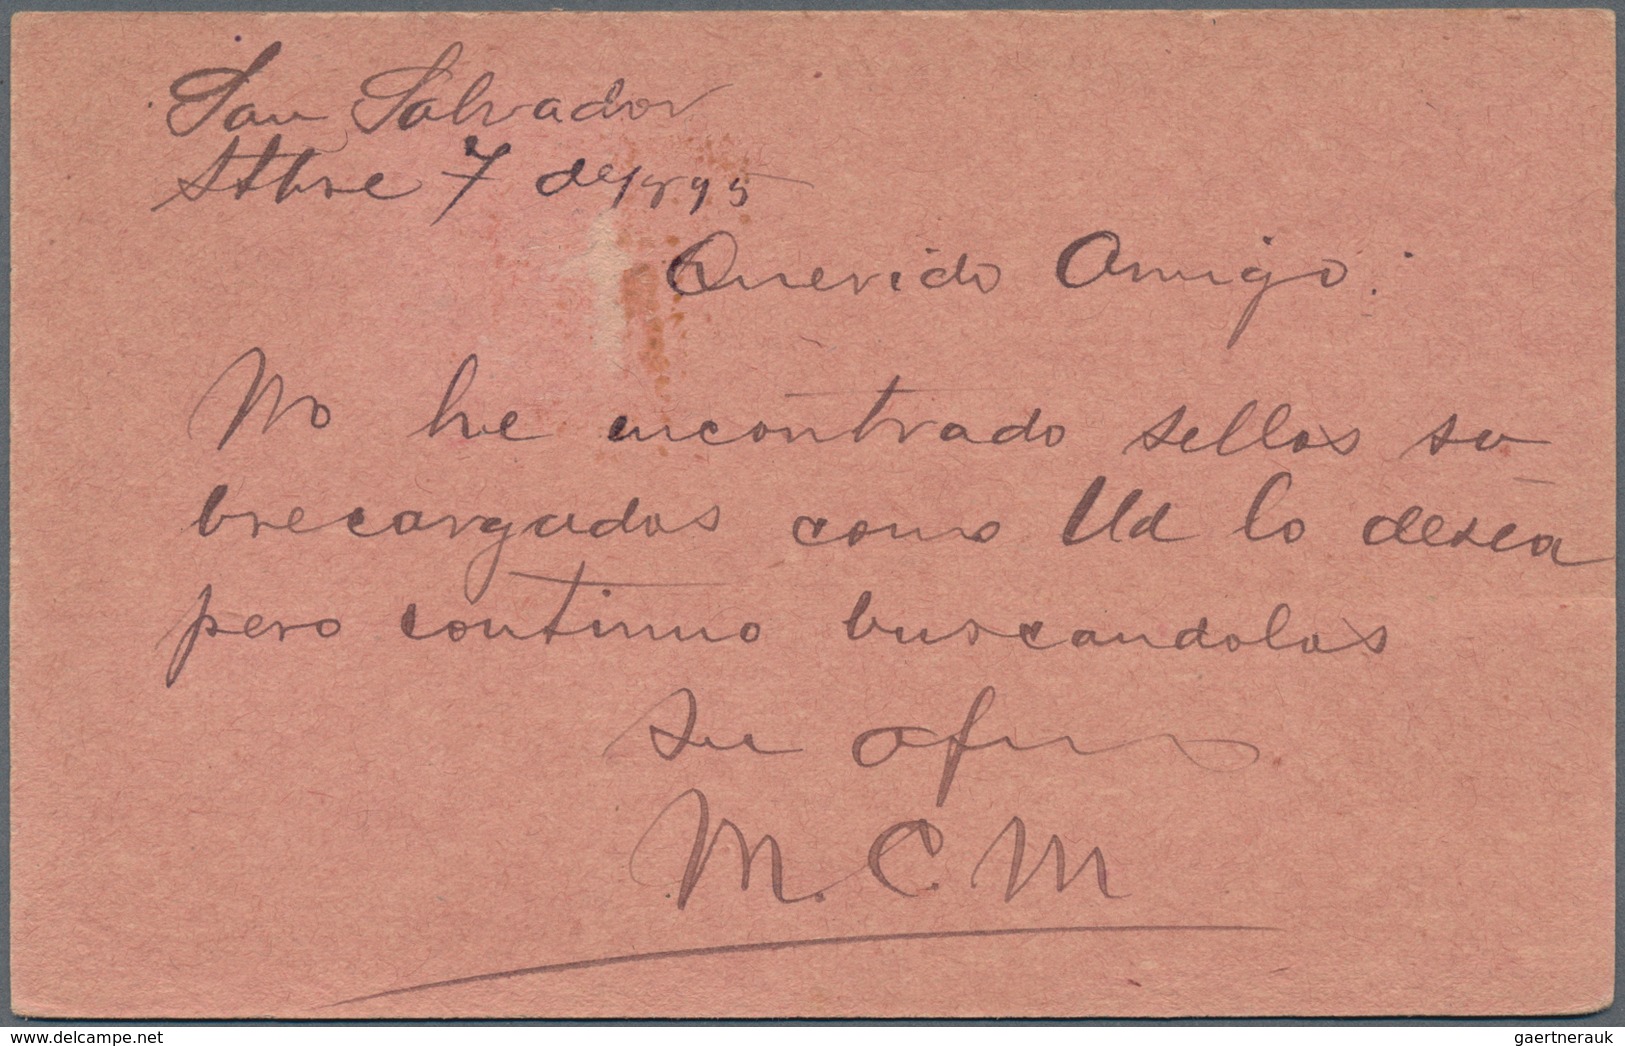 San Salvador
Stbre 7 de 1895
Querido Amigo:
No he encontrado sellos so
brecargados como Ud lo desea
pero continuo buscandolos
Su afmo
M. C. M
delcampe.net
gaertnerauk